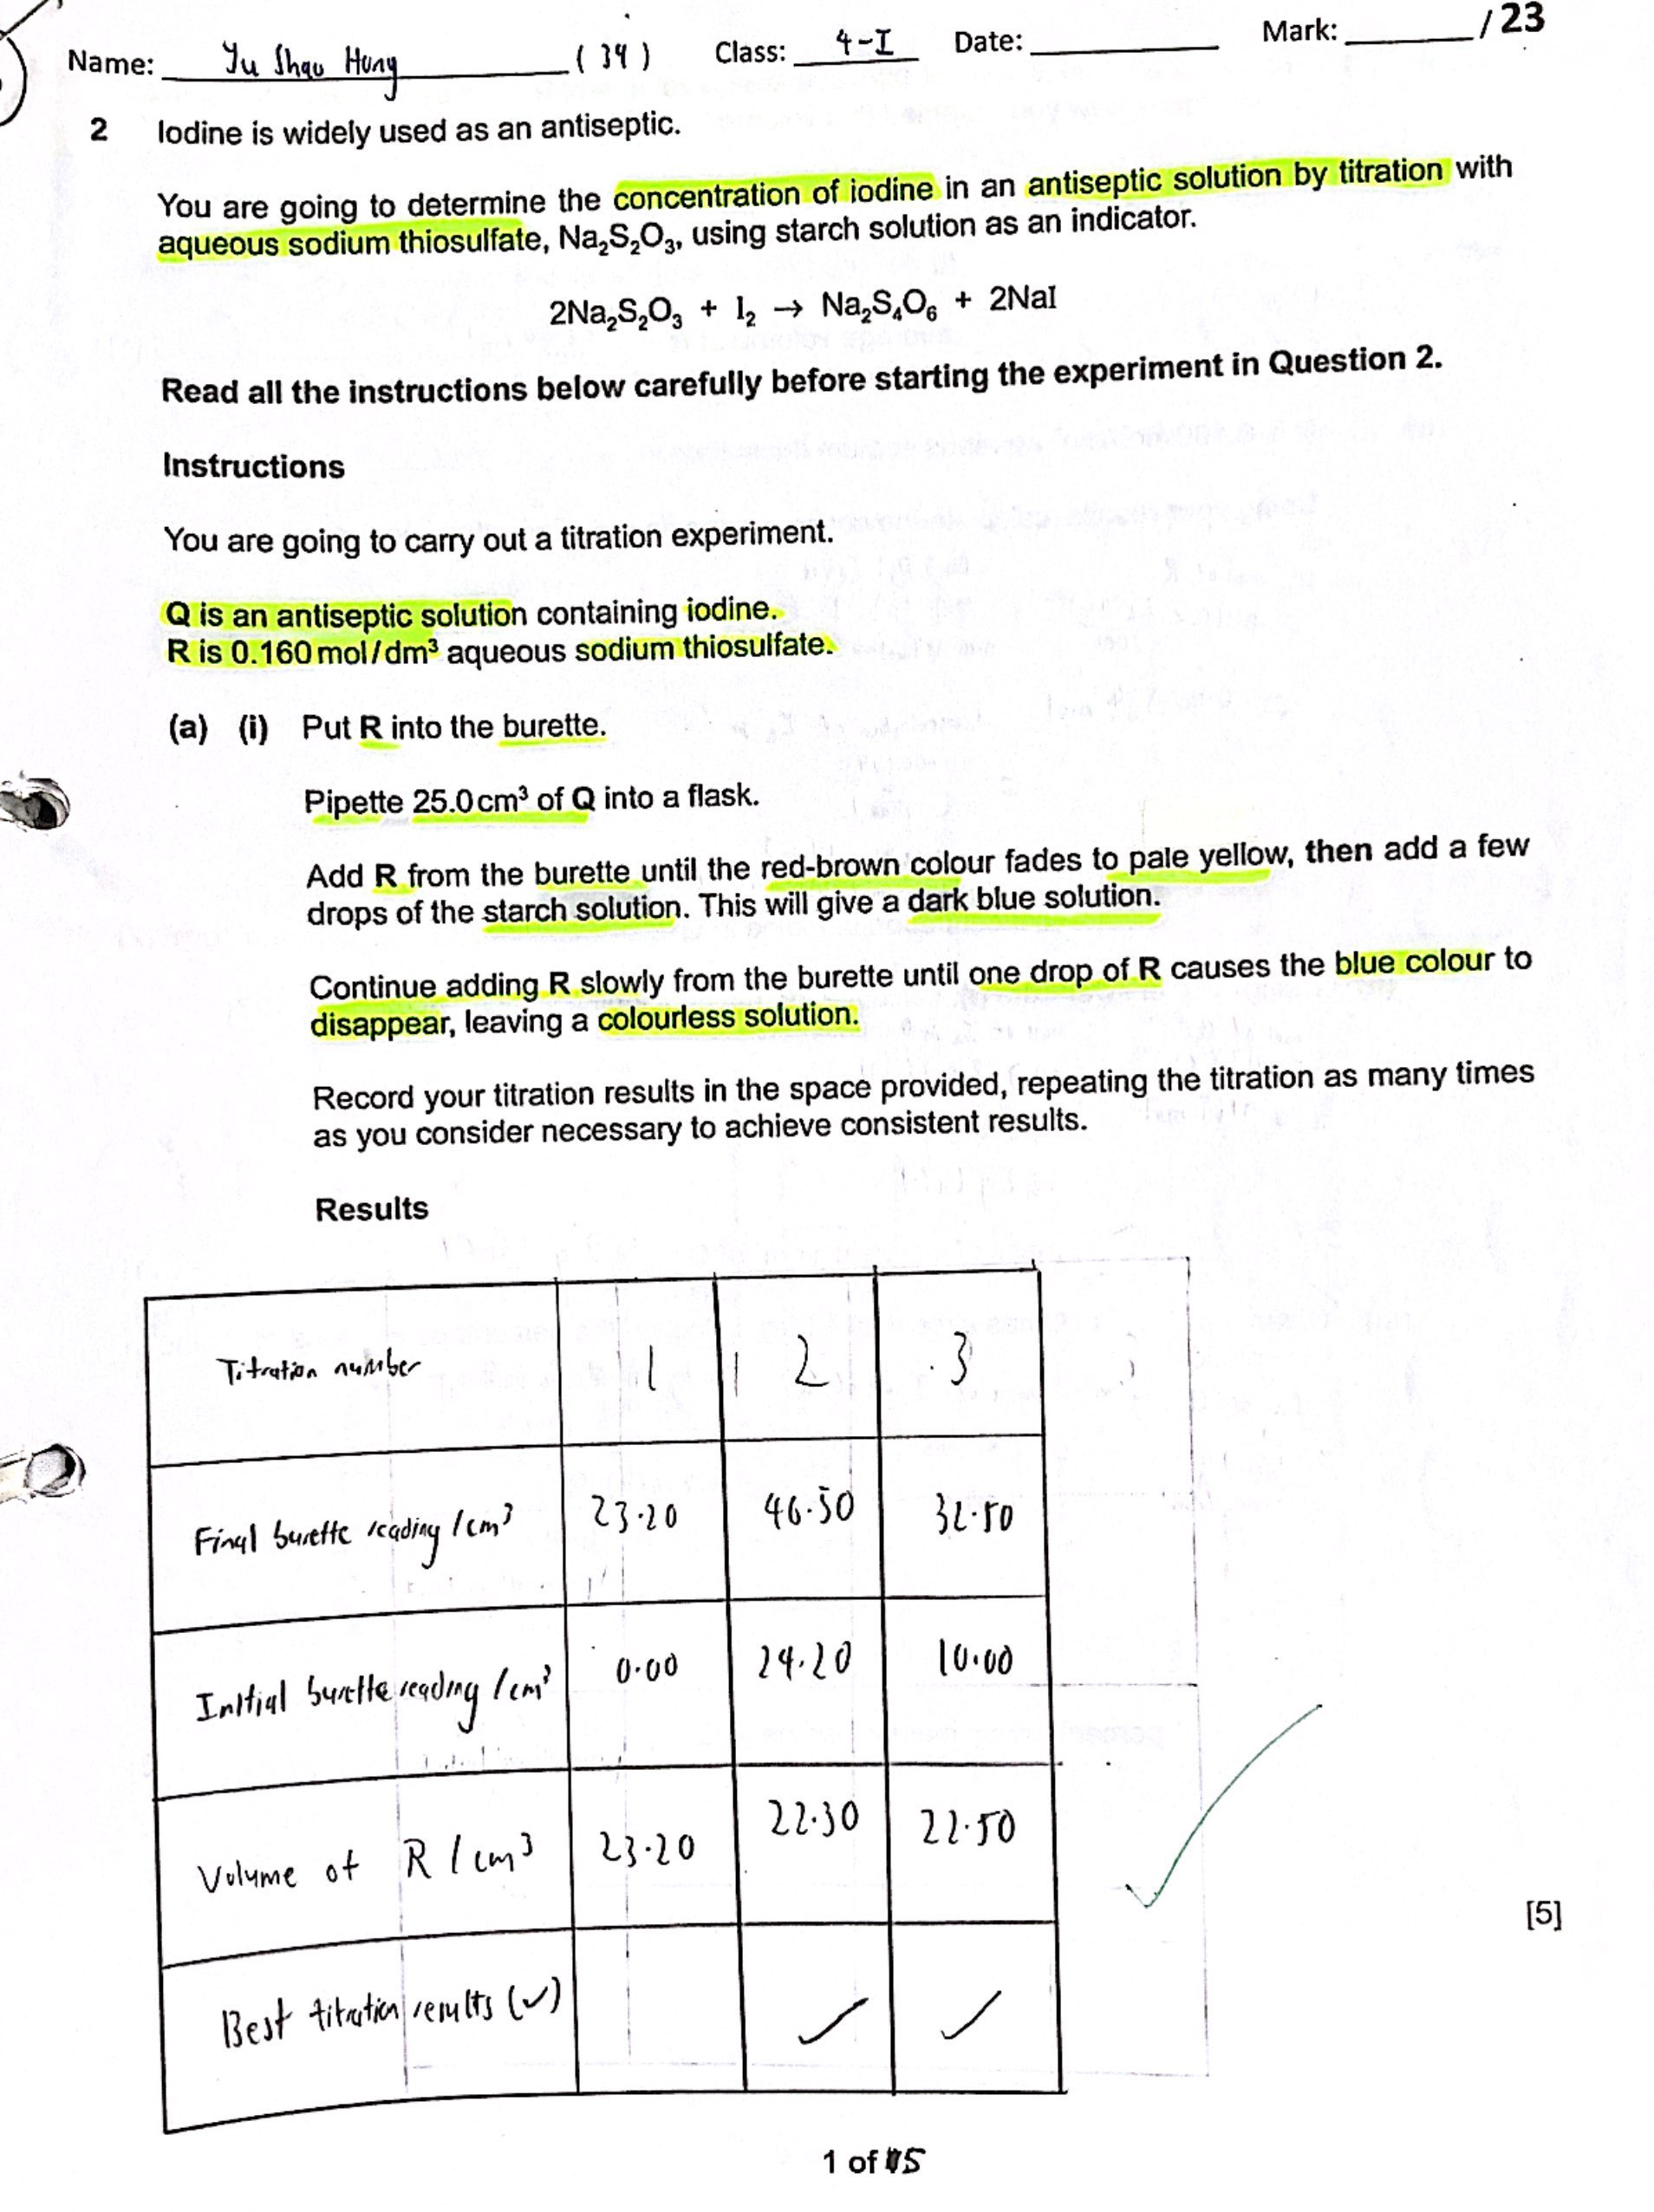 Name: Yu Shao Hung (34) Class: 4-I Date: Mark: /23
2 Iodine is widely used as an antiseptic.
You are going to determine the concentration of iodine in an antiseptic solution by titration with
aqueous sodium thiosulfate, Na₂S₂O₃, using starch solution as an indicator.
2Na₂S₂O₃ + I₂ → Na₂S₄O₆ + 2NaI
Read all the instructions below carefully before starting the experiment in Question 2.
Instructions
You are going to carry out a titration experiment.
Q is an antiseptic solution containing iodine.
R is 0.160 mol/dm³ aqueous sodium thiosulfate.
(a) (i) Put R into the burette.
Pipette 25.0 cm³ of Q into a flask.
Add R from the burette until the red-brown colour fades to pale yellow, then add a few
drops of the starch solution. This will give a dark blue solution.
Continue adding R slowly from the burette until one drop of R causes the blue colour to
disappear, leaving a colourless solution.
Record your titration results in the space provided, repeating the titration as many times
as you consider necessary to achieve consistent results.
Results
Titration number 1 2 3
Final burette reading /cm³ 23.20 46.50 32.50
Initial burette reading /cm³ 0.00 24.20 10.00
Volume of R /cm³ 23.20 22.30 22.50
[5]
Best titration results (✓) ✓ ✓
1 of 15